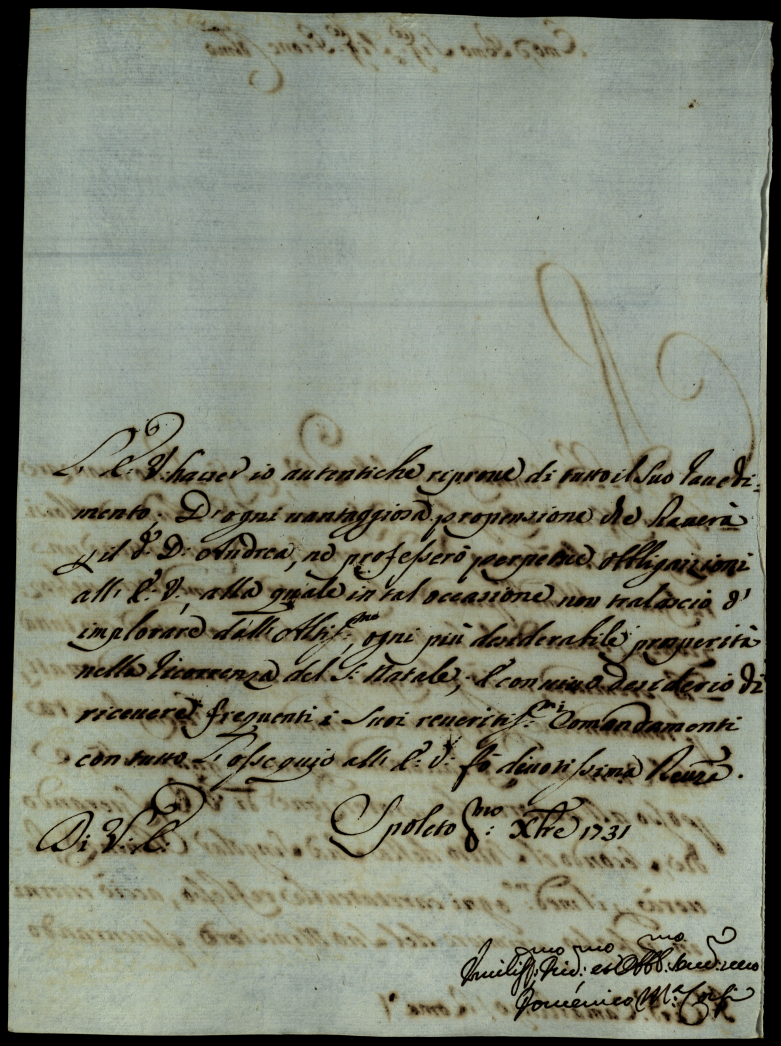 L'E: V: haver io autentiche riprove di tutto il Suo
mento. D'ogni vantaggiosa propensione che haverà
p il S.r D: Andrea, ne professerò perpetue obbligazioni
all' E: V:, alla quale in tal occasione non tralascio d'
implorare dall' Altis.mo ogni più desiderabile prosperità
nella ricorrenza del S: Natale, e con vivo desiderio di
ricevere frequenti i Suoi riveritis.mi Comandamenti
con tutto L'ossequio all' E: V: fò divotissima Reuza.
Di V: E:
Spoleto p.mo Xbre 1731
Umiliss.mo Div.mo et Obb.mo Ser.
Domenico M.a Corsi